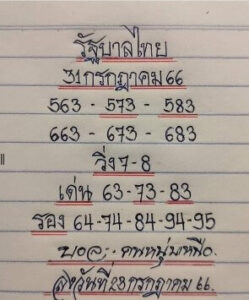 รัฐบาลไทย
31กรกฎาคม66
563 - 573 - 583
663 - 673 - 683
วิ่ง7-8
เด่น 63-73-83
รอง 64-74-84-94-95
บอล; คนหนุ่มเหนือ.
วันที่28กรกฎาคม 66.